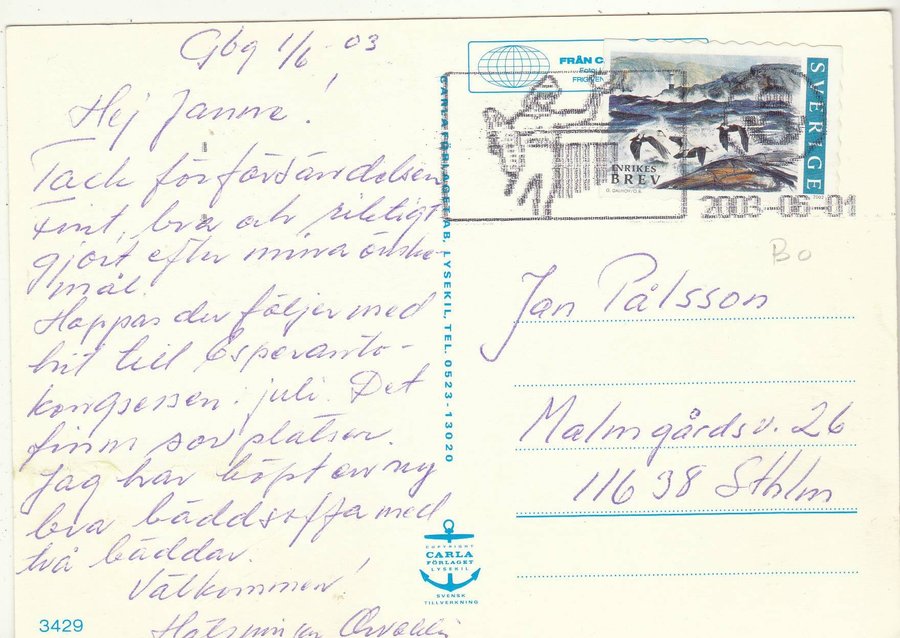 Gbg 1/6 -03
Hej Janne!
Tack för försändelsen
Fint, bra och riktigt
gjort efter mina önske-
mål.
Hoppas du följer med
hit till Esperanto-
kongressen i juli. Det
finns sovplatser.
Jag har köpt en ny
bra bäddsoffa med
två bäddar.
Välkommen!
Hälsningar
3429
CARLA FÖRLAGET AB, LYSEKIL, TEL. 0523-13020
COPYRIGHT
CARLA
FÖRLAGET
LYSEKIL
SVENSK
TILLVERKNING
FRÅN
SVERIGE
INRIKES
BREV
2003-06-01
Bo
Jan Pålsson
Malmgårdsv. 26
11638 Sthlm